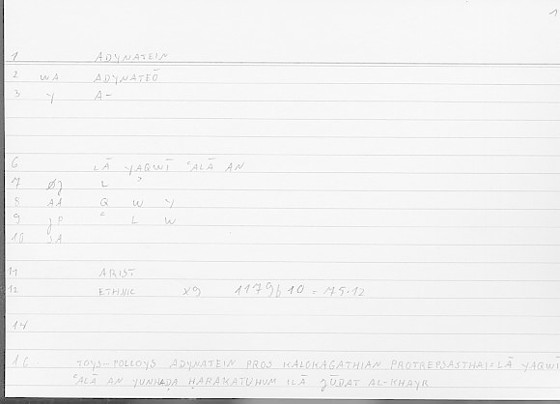 1
1 ADYNATEIN
2 WA ADYNATEŌ
3 Y A-
6 LĀ YAQWĪ ʿALĀ AN
7 ØJ L ʾ
8 AA Q W Y
9 JF ʿ L W
10 SA
11 ARIST
12 ETHNIC X9 1179b10 = 75.12
14
16 TOYS-POLLOYS ADYNATEIN PROS KALOKAGATHIAN PROTREPSASTHAI = LĀ YAQWĪ
ʿALĀ AN YUNHIḌA ḤARAKATUHUM ILĀ ǦŪDAT AL-KHAYR